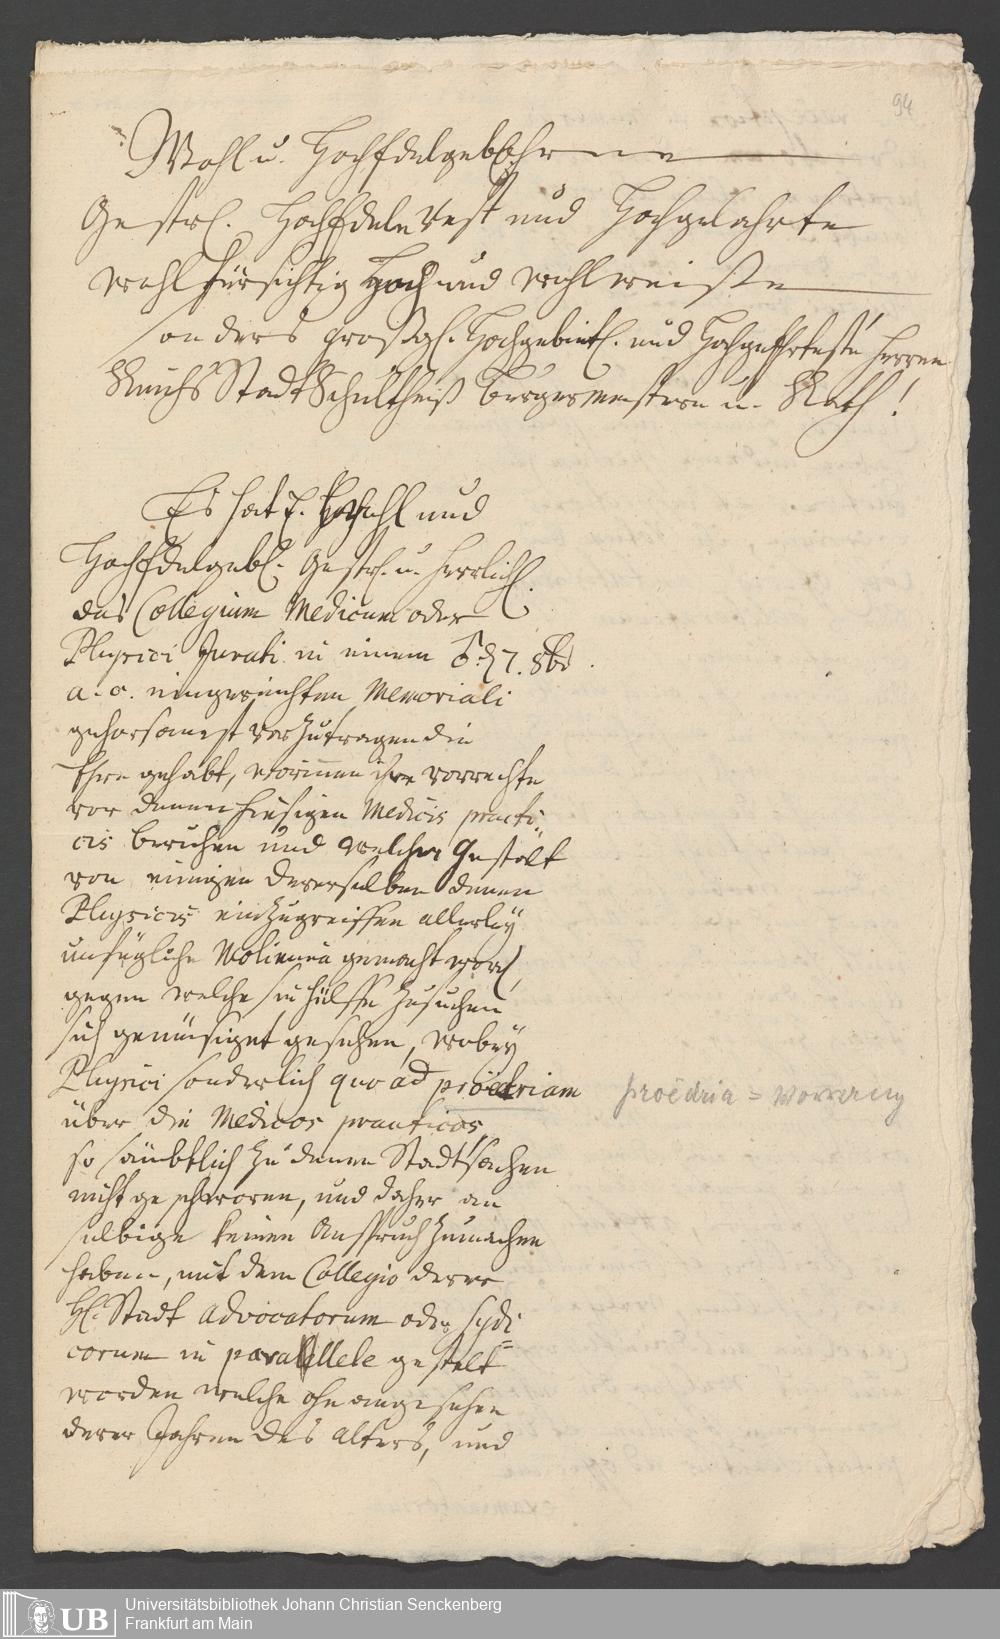 94
Wohl u. HochEdelgebohrne
Gestr. HochEdele Vest und Hochgelahrte
Wohlfürsichtig Hoch und Wohlweiße
sonders großg. Hochgebiet. und HochgeEhrteste Herren
Reichs Stadt Schultheiß Burgermeistere u. Rath!
Es hat E. Wohl und
HochEdelgeb. Gestr. u. Herrlich.
das Collegium Medicum oder
Physici Jurati in einem ♂ d 7. 8br
a. c. eingereichten Memoriali
gehorsamst vorzutragen die
Ehre gehabt, worinnen ihre vorrechte
vor denen hiesigen Medicis practi=
cis beruhen und welcher Gestalt
von einigen dererselben denen
Physicis einzugreiffen allerley
unfügliche Molimina gemacht word,
gegen welche sie hülffe zu suchen
sich genüsiget gesehen, wobey
Physici sonderlich quo ad proëdriam
über die Medicos practicos,
so sämbtlich zu denen Stadtsachen
nicht geschworen, und daher an
selbige keinen Anspruch zumachen
haben, mit dem Collegio derer
H. Stadt Advocatorum oder Sÿdi=
corum in parallele gestelt
worden welche ohnangesehen
derer Jahren des Alters, und
proëdria = Vorrang
UB
Universitätsbibliothek Johann Christian Senckenberg
Frankfurt am Main